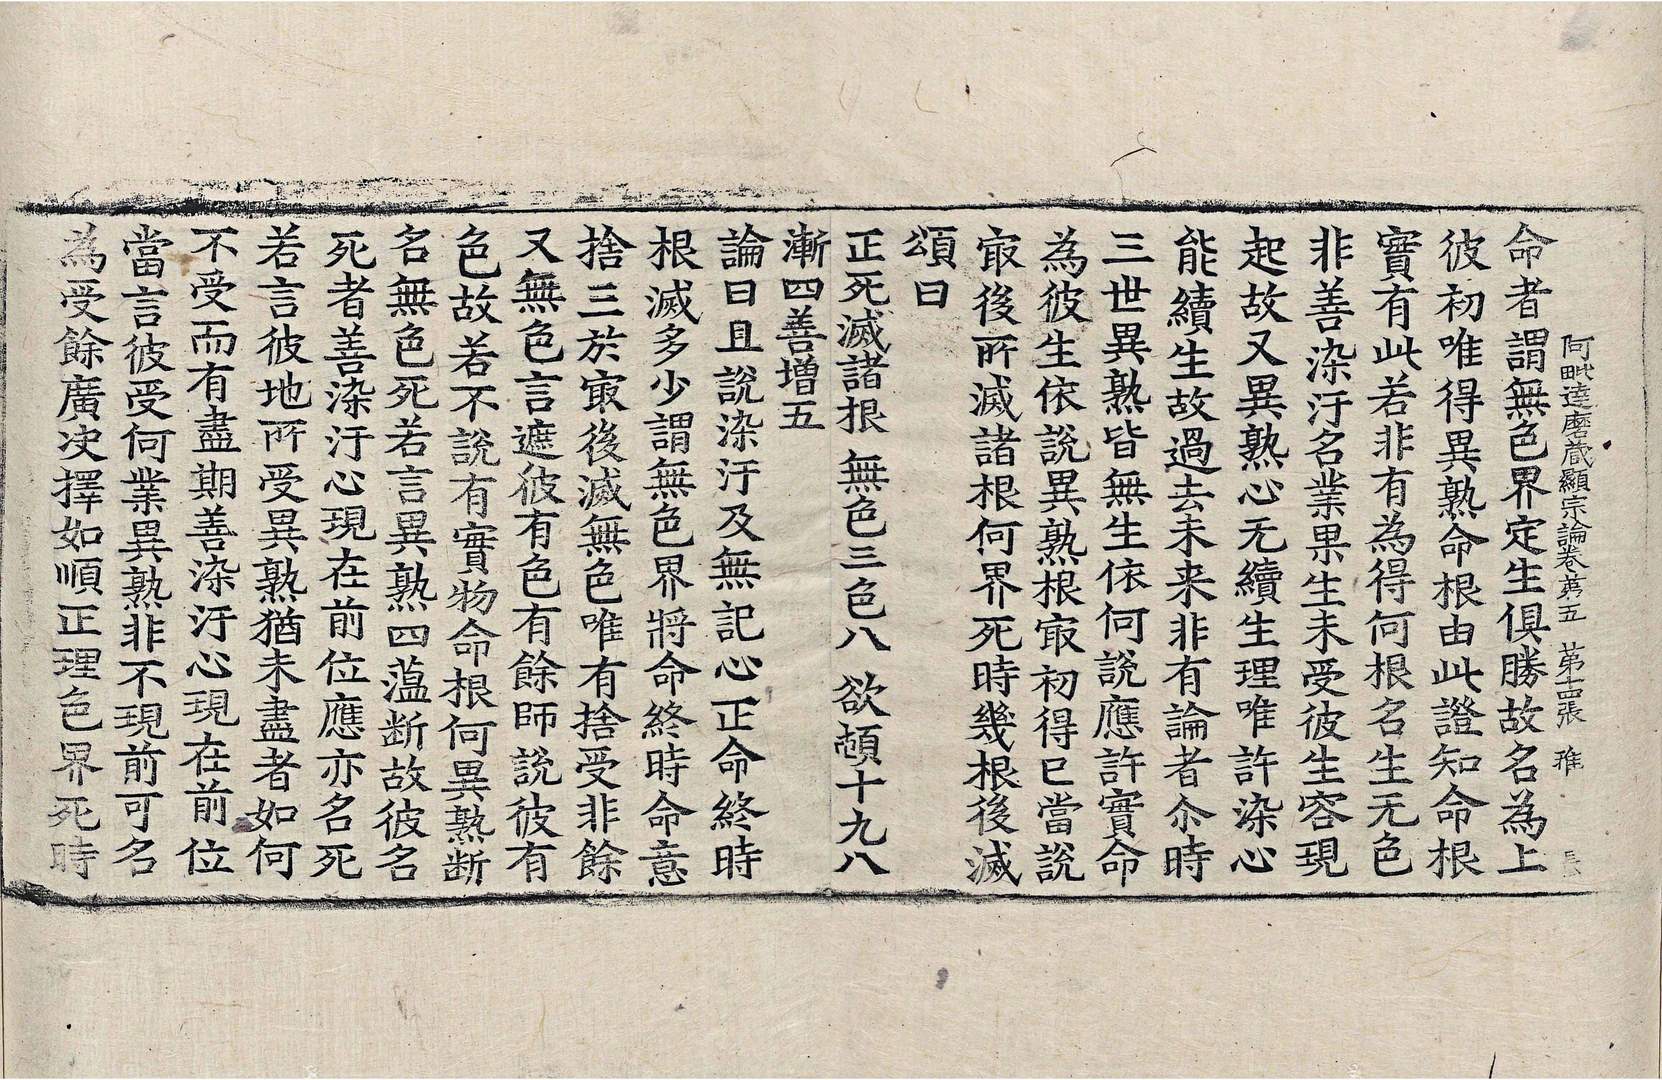 阿毗達磨蔵顯宗論卷苐五　苐十四張　雅
命者謂無色界定生俱勝故名為上
彼初唯得異熟命根由此證知命根
實有此若非有為得何根名生无色
非善染汙名業果生未受彼生容現
起故又異熟心无續生理唯許染心
能續生故過去未来非有論者尒時
三世異熟皆無生依何說應許實命
為彼生依說異熟根㝡初得已當說
㝡後所滅諸根何界死時幾根後滅
頌曰
正死滅諸根　無色三色八　欲頓十九八
漸四善增五
論曰且說染汙及無記心正命終時
根滅多少謂無色界將命終時命意
捨三於㝡後滅無色唯有捨受非餘
又無色言遮彼有色有餘師說彼有
色故若不說有實物命根何異熟断
名無色死若言異熟四薀断故彼名
死者善染汙心現在前位應亦名死
若言彼地所受異熟猶未盡者如何
不受而有盡期善染汙心現在前位
當言彼受何業異熟非不現前可名
為受餘廣决擇如順正理色界死時